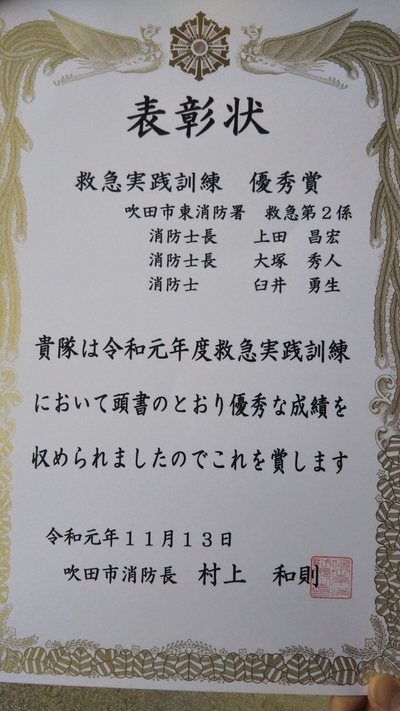 表彰状
救急実践訓練　優秀賞
吹田市東消防署　救急第２係
消防士長　上田　昌宏
消防士長　大塚　秀人
消防士　臼井　勇生
貴隊は令和元年度救急実践訓練
において頭書のとおり優秀な成績を
収められましたのでこれを賞します
令和元年１１月１３日
吹田市消防長　村上　和則